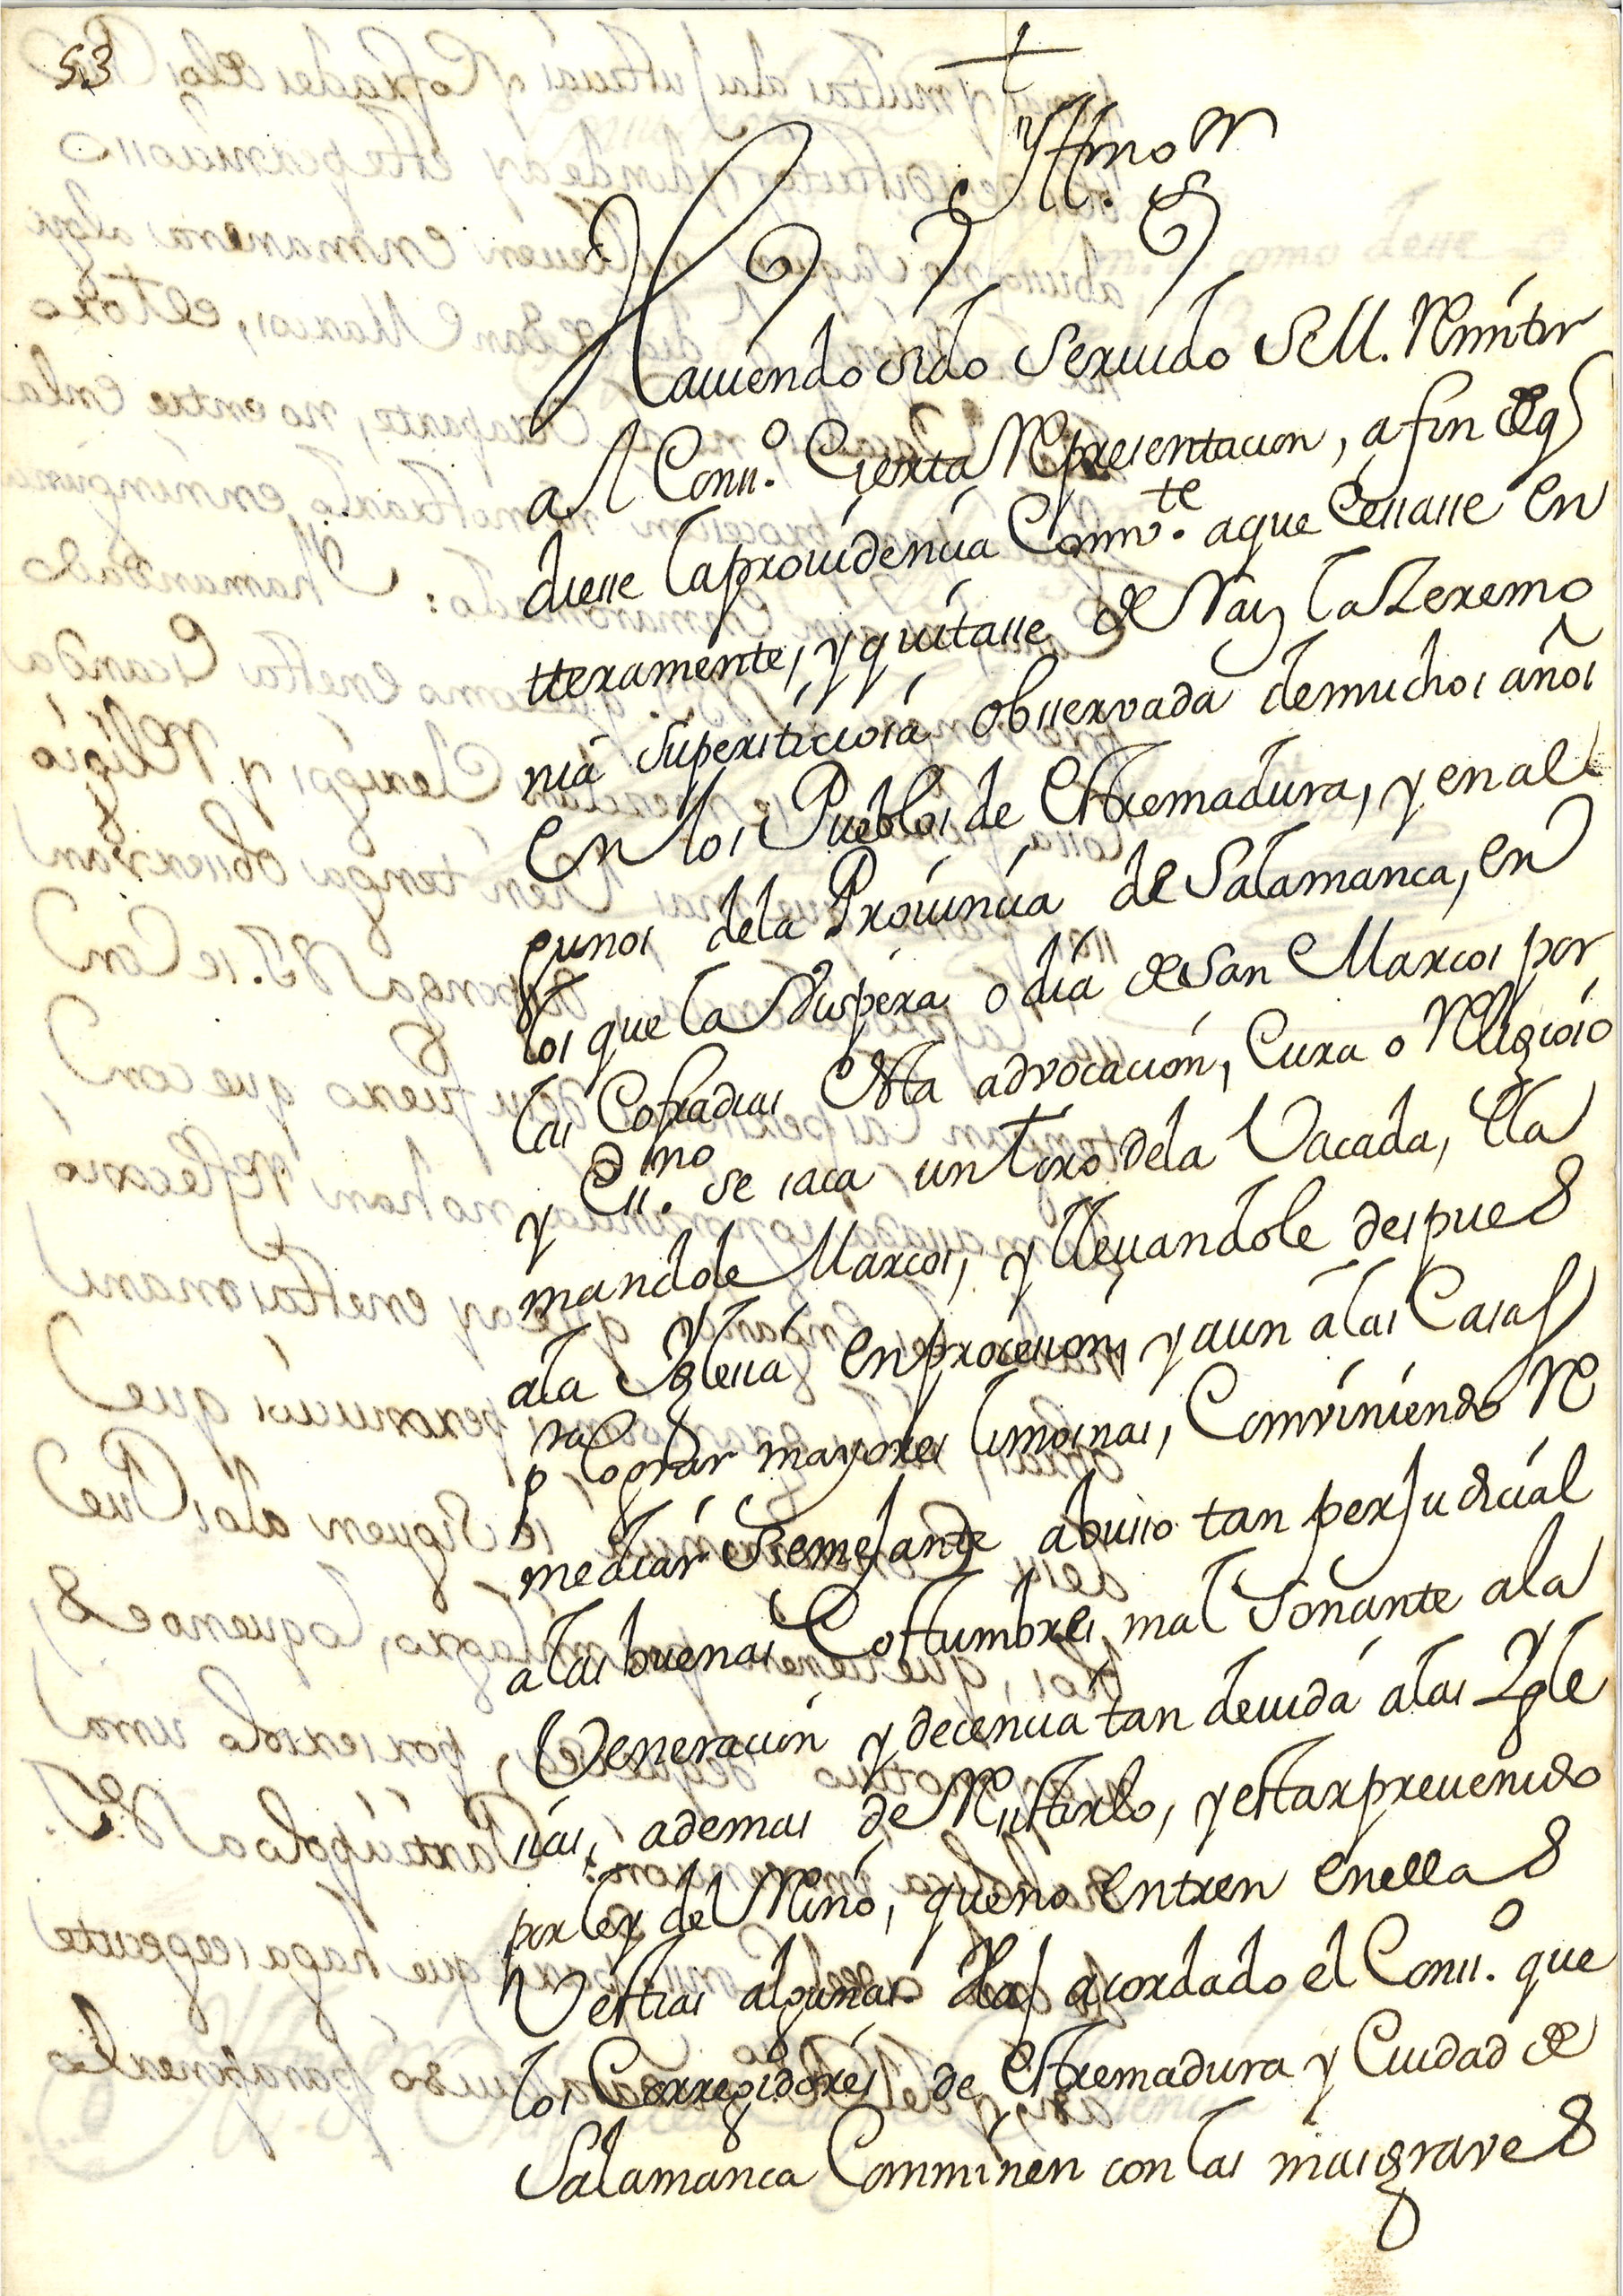 53
+
Yllmo Sr
Haviendo sido servido S. M. Remitir
al Conss.o Cierta Representacion, a fin de q.
diesse la providencia Comv.te a que Cessasse en
tteramente, y quitasse de Raiz la Zeremo
nia supersticiosa observada de muchos años
en los Pueblos de Estremadura, y en al
gunos de la Provincia de Salamanca, en
los que la Vispera o dia de San Marcos por
las Cofradias Esta advocacion, Cura o Religioso
y Ess.no se saca un toro de la Vacada, lla
mandole Marcos, y llevandole despues
a la Yglesia en procession, y aun a las Casas
p.ra lograr mayores limosnas, Comviniendo Re
mediar Semejante abusso tan perjudicial
a las buenas Costumbres, mal Sonante a la
Veneracion y decencia tan devida a las Ygle
sias, ademas de Resistirlo, y estar prevenido
por ley del Reino, que no entren en ellas
Vestias algunas. Ha acordado el Conss.o que
los Corregidores de Estremadura y Ciudad de
Salamanca Comminen con las mas graves